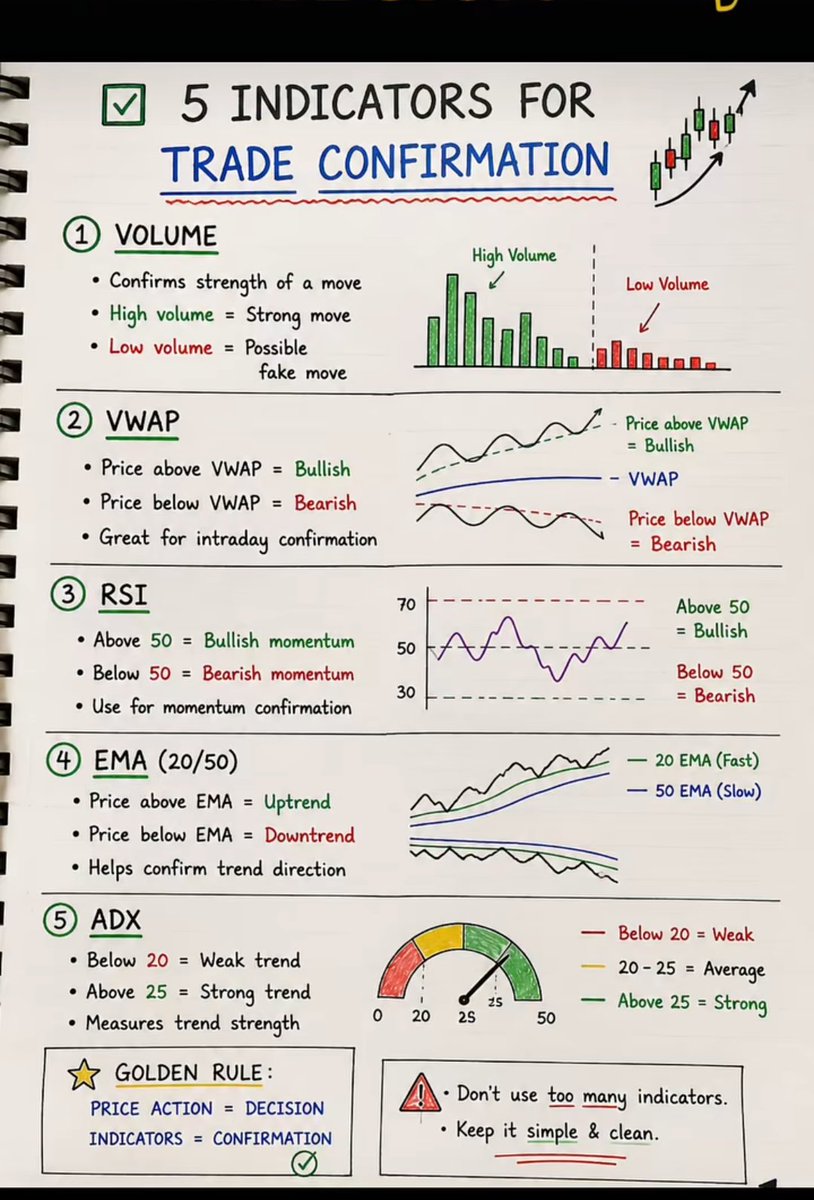 5 INDICATORS FOR
TRADE CONFIRMATION
1 VOLUME
• Confirms strength of a move
• High volume = Strong move
• Low volume = Possible
fake move
High Volume
Low Volume
2 VWAP
• Price above VWAP = Bullish
• Price below VWAP = Bearish
• Great for intraday confirmation
Price above VWAP
= Bullish
VWAP
Price below VWAP
= Bearish
3 RSI
• Above 50 = Bullish momentum
• Below 50 = Bearish momentum
• Use for momentum confirmation
70
50
30
Above 50
= Bullish
Below 50
= Bearish
4 EMA (20/50)
• Price above EMA = Uptrend
• Price below EMA = Downtrend
• Helps confirm trend direction
20 EMA (Fast)
50 EMA (Slow)
5 ADX
• Below 20 = Weak trend
• Above 25 = Strong trend
• Measures trend strength
0 20 25 25 50
Below 20 = Weak
20 - 25 = Average
Above 25 = Strong
GOLDEN RULE:
PRICE ACTION = DECISION
INDICATORS = CONFIRMATION
! • Don't use too many indicators.
• Keep it simple & clean.